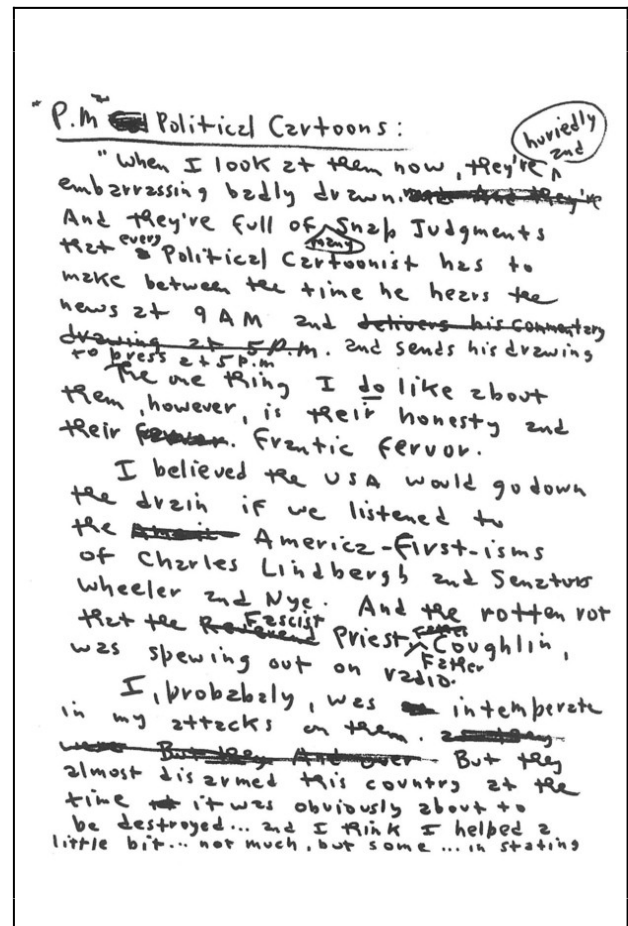 "P.M" Political Cartoons:
huriedly
and
"When I look at them now, they're ^
embarrassing badly drawn. And they're
And they're full of Snap Judgments
that every Political Cartoonist has to
many
make between the time he hears the
news at 9 AM and delivers his commentary
drawing at 5 P.M. and sends his drawing
to press at 5 P.m
The one thing I do like about
them, however, is their honesty and
their frantic fervor.
I believed the USA would go down
the drain if we listened to
the America-first-isms
of Charles Lindbergh and Senators
Wheeler and Nye. And the rotten rot
that the Reverend Fascist Priest ^ Father Coughlin,
was spewing out on radio.
Father
I, probabaly, was intemperate
in my attacks on them.
were But they And over But they
almost disarmed this country at the
time it was obviously about to
be destroyed... and I think I helped a
little bit... not much, but some... in stating